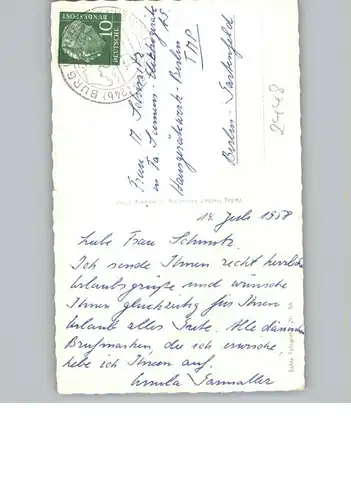 14. Juli 1958
Liebe Frau Schmitz.
Ich sende Ihnen recht herzliche
Urlaubsgrüße und wünsche
Ihnen gleichzeitig für Ihren
Urlaub alles Gute. Alle dänischen
Briefmarken die ich erwische,
hebe ich Ihnen auf.
Ursula
Frau Schmitz
in Fa. Siemens-Electrogeräte
Hausgerätewerk-Berlin
TMP
Berlin-Gartenfeld
DEUTSCHE
BUNDESPOST
10
(24b) BURG
2448
Echte Fotografie